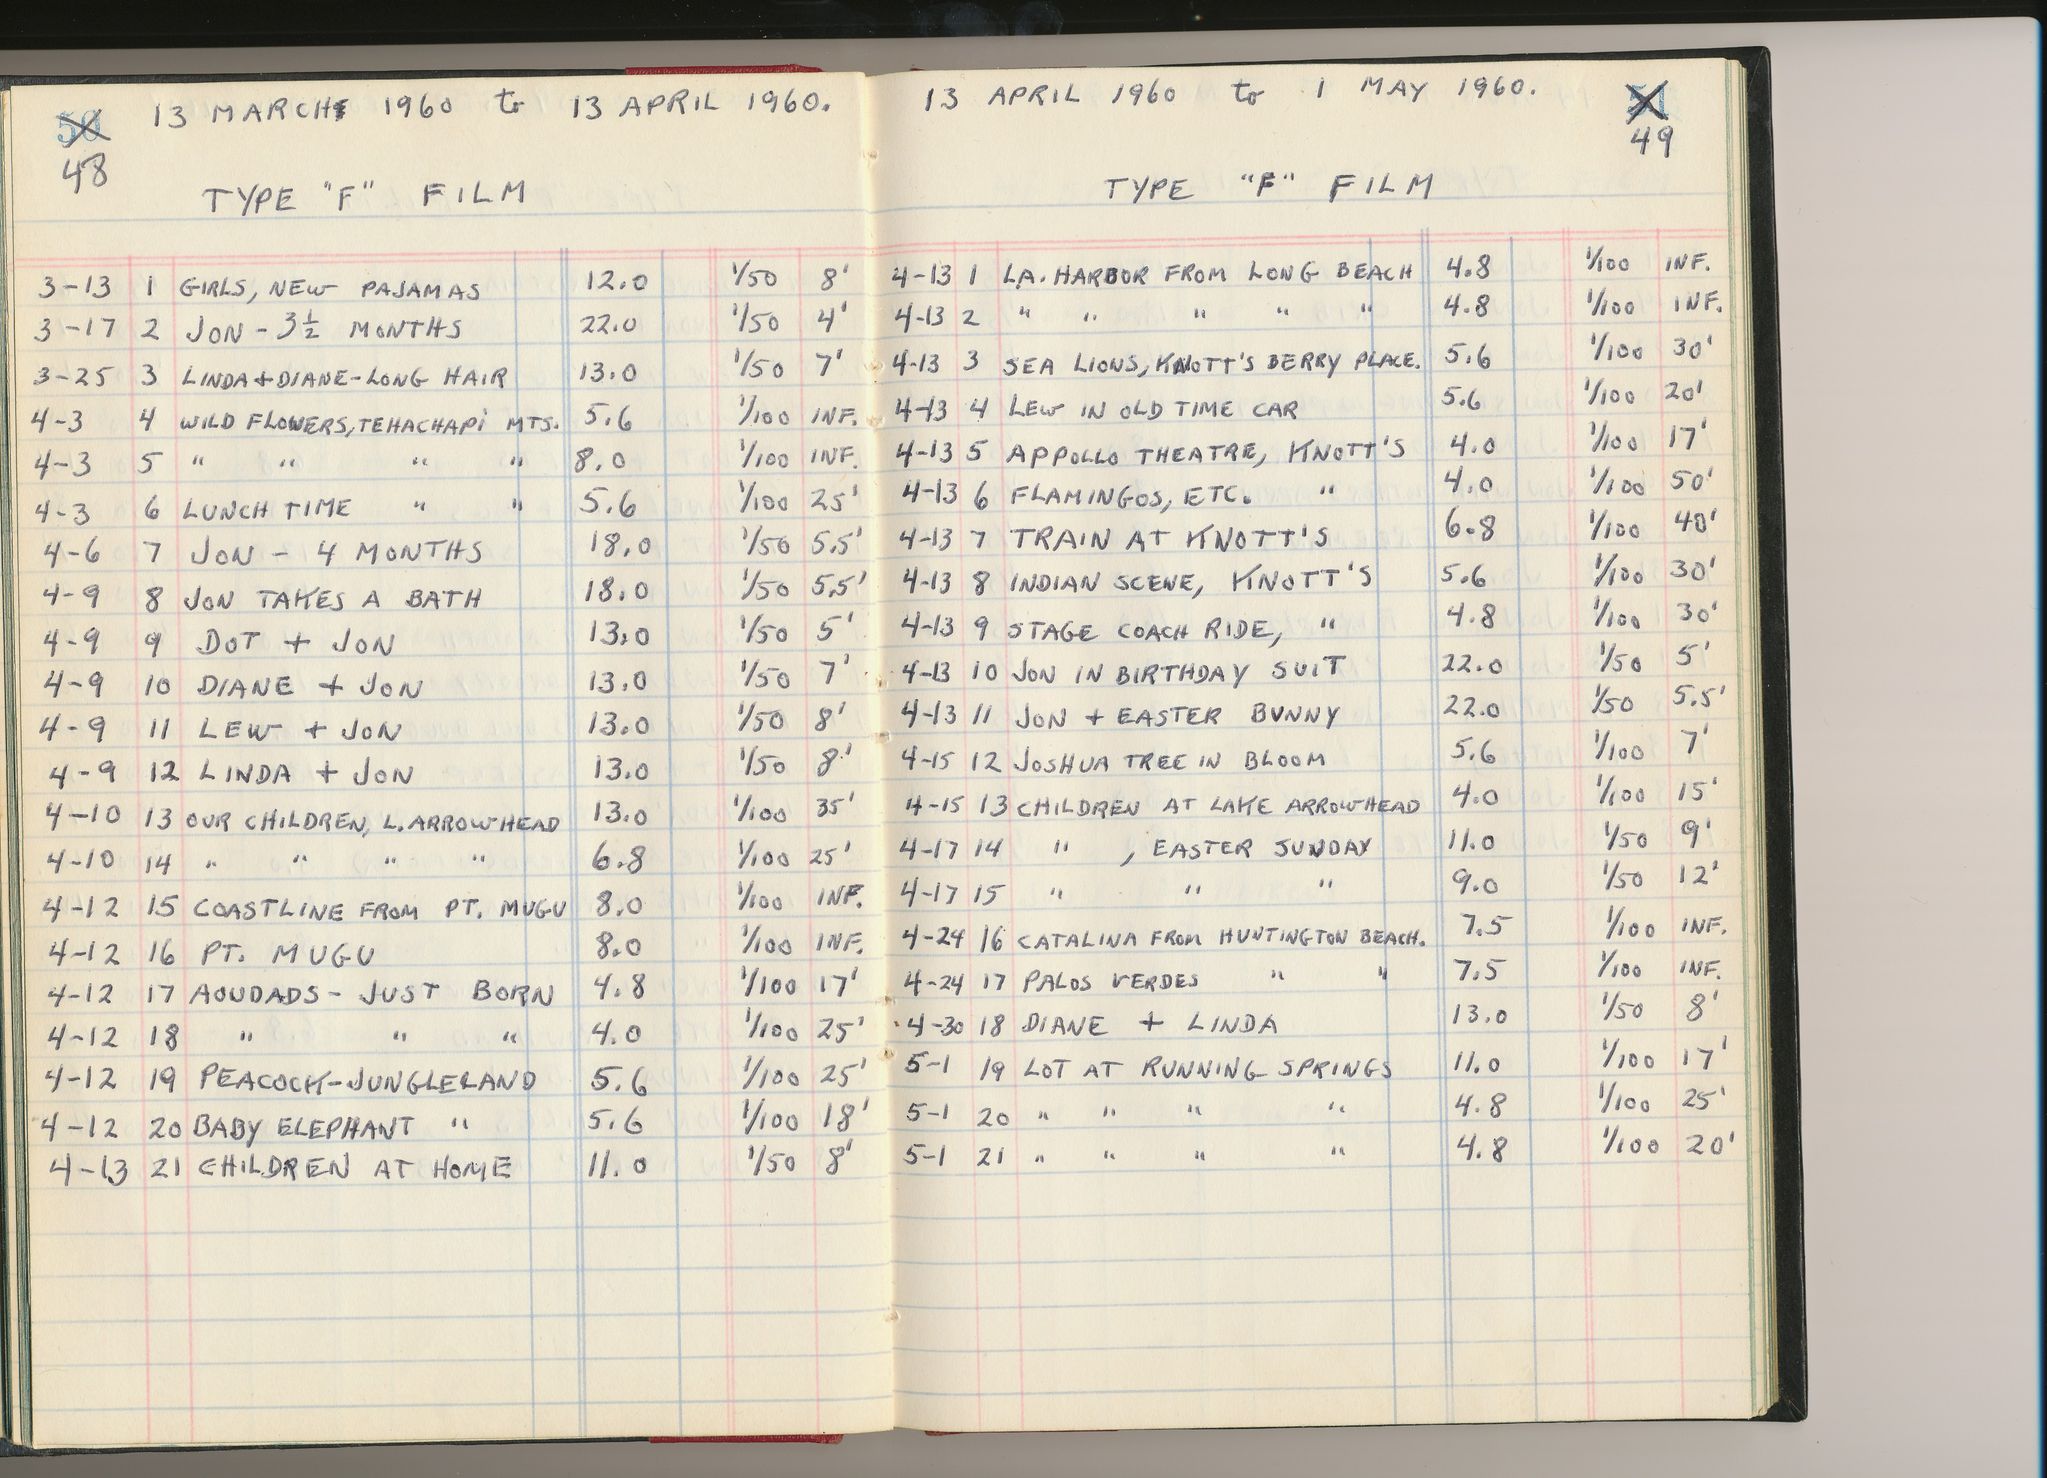 50
48
13 MARCH 1960 to 13 APRIL 1960.
TYPE "F" FILM
3-13 1 GIRLS, NEW PAJAMAS 12.0 1/50 8'
3-17 2 JON - 3 1/2 MONTHS 22.0 1/50 4'
3-25 3 LINDA + DIANE - LONG HAIR 13.0 1/50 7'
4-3 4 WILD FLOWERS, TEHACHAPI MTS. 5.6 1/100 INF.
4-3 5 " " " " 8.0 1/100 INF.
4-3 6 LUNCH TIME " " 5.6 1/100 25'
4-6 7 JON - 4 MONTHS 18.0 1/50 5.5'
4-9 8 JON TAKES A BATH 18.0 1/50 5.5'
4-9 9 DOT + JON 13.0 1/50 5'
4-9 10 DIANE + JON 13.0 1/50 7'
4-9 11 LEW + JON 13.0 1/50 8'
4-9 12 LINDA + JON 13.0 1/50 8'
4-10 13 OUR CHILDREN, L. ARROWHEAD 13.0 1/100 35'
4-10 14 " " " " 6.8 1/100 25'
4-12 15 COASTLINE FROM PT. MUGU 8.0 1/100 INF.
4-12 16 PT. MUGU 8.0 1/100 INF.
4-12 17 AOUDADS - JUST BORN 4.8 1/100 17'
4-12 18 " " " 4.0 1/100 25'
4-12 19 PEACOCK - JUNGLELAND 5.6 1/100 25'
4-12 20 BABY ELEPHANT " 5.6 1/100 18'
4-13 21 CHILDREN AT HOME 11.0 1/50 8'
13 APRIL 1960 to 1 MAY 1960.
51
49
TYPE "F" FILM
4-13 1 L.A. HARBOR FROM LONG BEACH 4.8 1/100 INF.
4-13 2 " " " " " 4.8 1/100 INF.
4-13 3 SEA LIONS, KNOTT'S BERRY PLACE. 5.6 1/100 30'
4-13 4 LEW IN OLD TIME CAR 5.6 1/100 20'
4-13 5 APPOLLO THEATRE, KNOTT'S 4.0 1/100 17'
4-13 6 FLAMINGOS, ETC. " 4.0 1/100 50'
4-13 7 TRAIN AT KNOTT'S 6.8 1/100 40'
4-13 8 INDIAN SCENE, KNOTT'S 5.6 1/100 30'
4-13 9 STAGE COACH RIDE, " 4.8 1/100 30'
4-13 10 JON IN BIRTHDAY SUIT 22.0 1/50 5'
4-13 11 JON + EASTER BUNNY 22.0 1/50 5.5'
4-15 12 JOSHUA TREE IN BLOOM 5.6 1/100 7'
4-15 13 CHILDREN AT LAKE ARROWHEAD 4.0 1/100 15'
4-17 14 " , EASTER SUNDAY 11.0 1/50 9'
4-17 15 " " " 9.0 1/50 12'
4-24 16 CATALINA FROM HUNTINGTON BEACH. 7.5 1/100 INF.
4-24 17 PALOS VERDES " " 7.5 1/100 INF.
4-30 18 DIANE + LINDA 13.0 1/50 8'
5-1 19 LOT AT RUNNING SPRINGS 11.0 1/100 17'
5-1 20 " " " " 4.8 1/100 25'
5-1 21 " " " " 4.8 1/100 20'